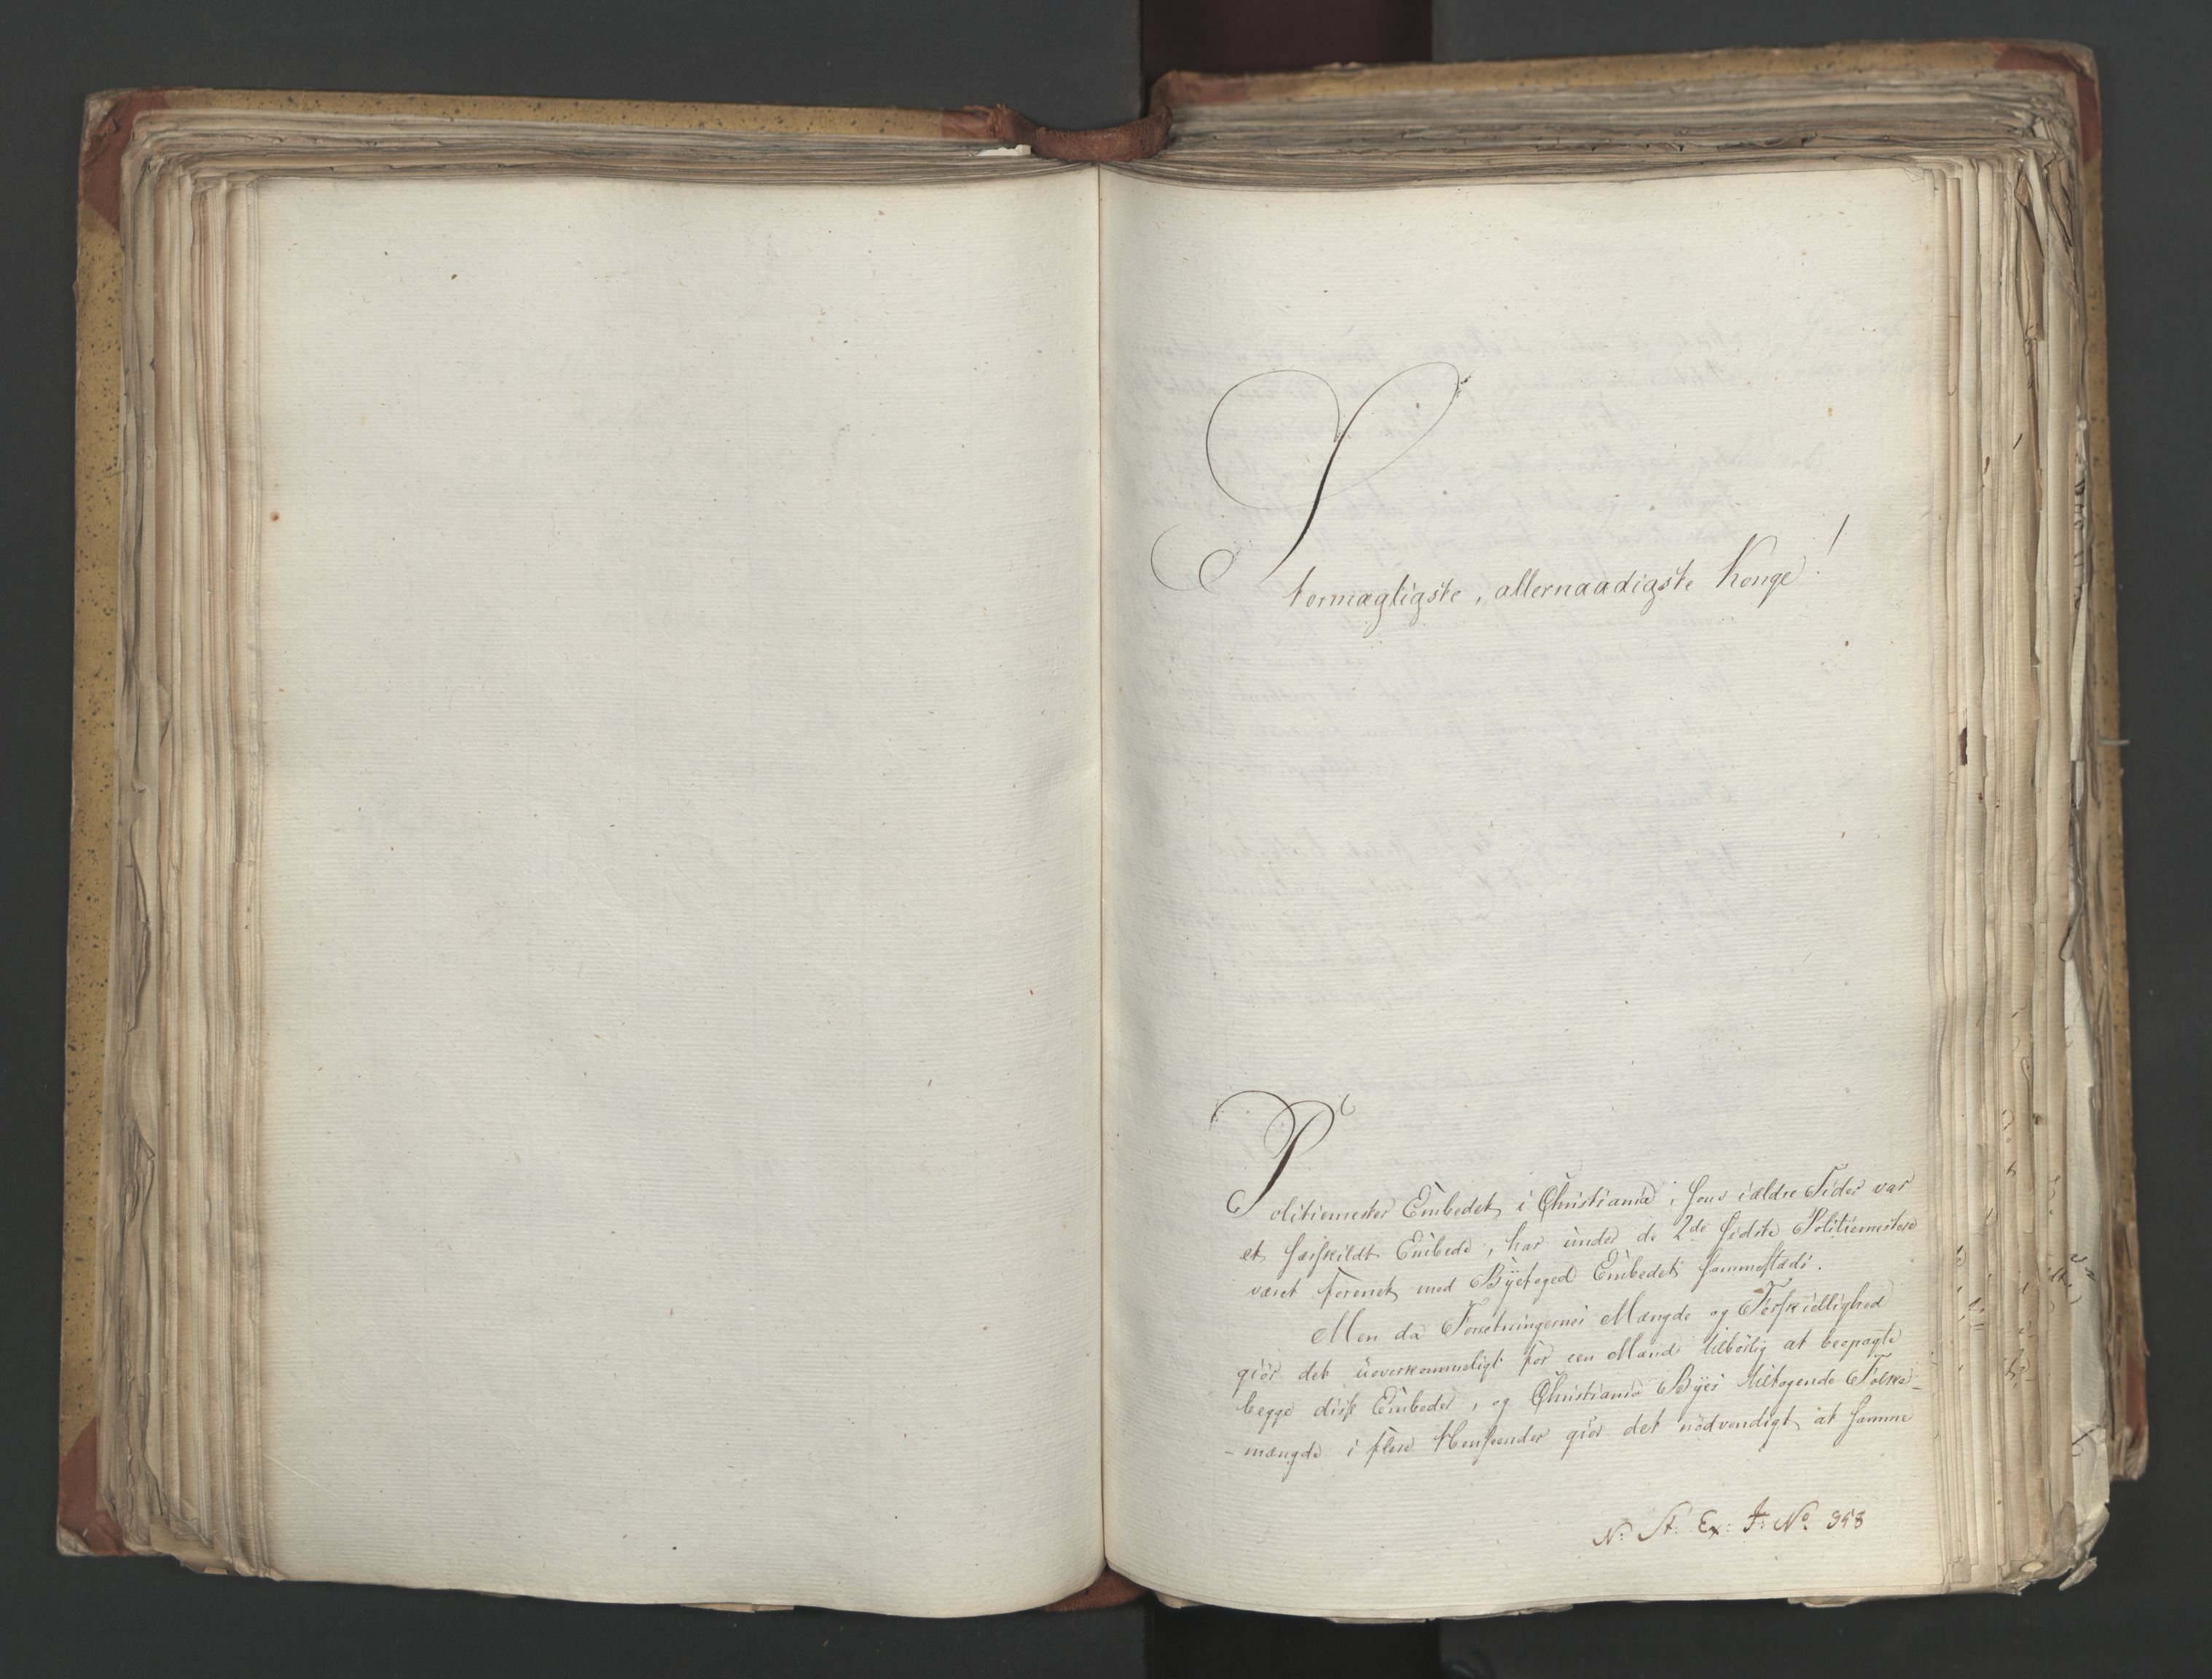 Stormægtigste, allernaadigste Konge!
Politiemester Embedet i Christiania, som i ældre Tider var
et særskildt Embede, har under de 2de sidste Politiemestere
været forenet med Byefoged Embedet sammestæds.
Men da Forretningernes Mængde og Forskiellighed
giør det uoverkommeligt for een Mand tilbørlig at beopagte
begge disse Embeder, og Christiania Byes tiltagende Folke-
-mængde i flere Henseender giør det nødvendigt at samme
N: St: Ex: J: No. 958